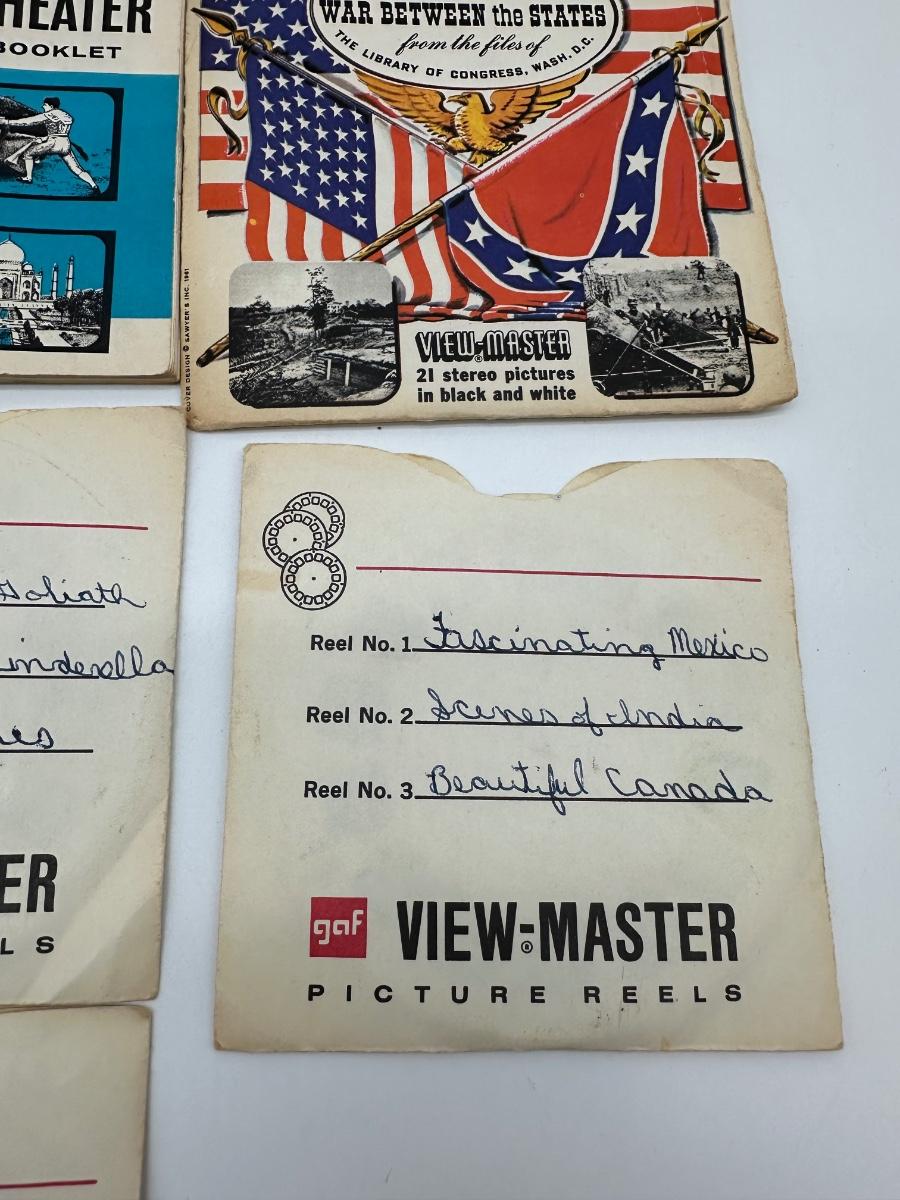 HEATER
BOOKLET
WAR BETWEEN the STATES
from the files of
THE LIBRARY OF CONGRESS, WASH. D.C.
COVER DESIGN © SAWYER'S INC. 1961
VIEW-MASTER
®
21 stereo pictures
in black and white
Goliath
inderella
ies
ER
L S
Reel No. 1 Fascinating Mexico
Reel No. 2 Scenes of India
Reel No. 3 Beautiful Canada
gaf VIEW-MASTER
®
PICTURE REELS